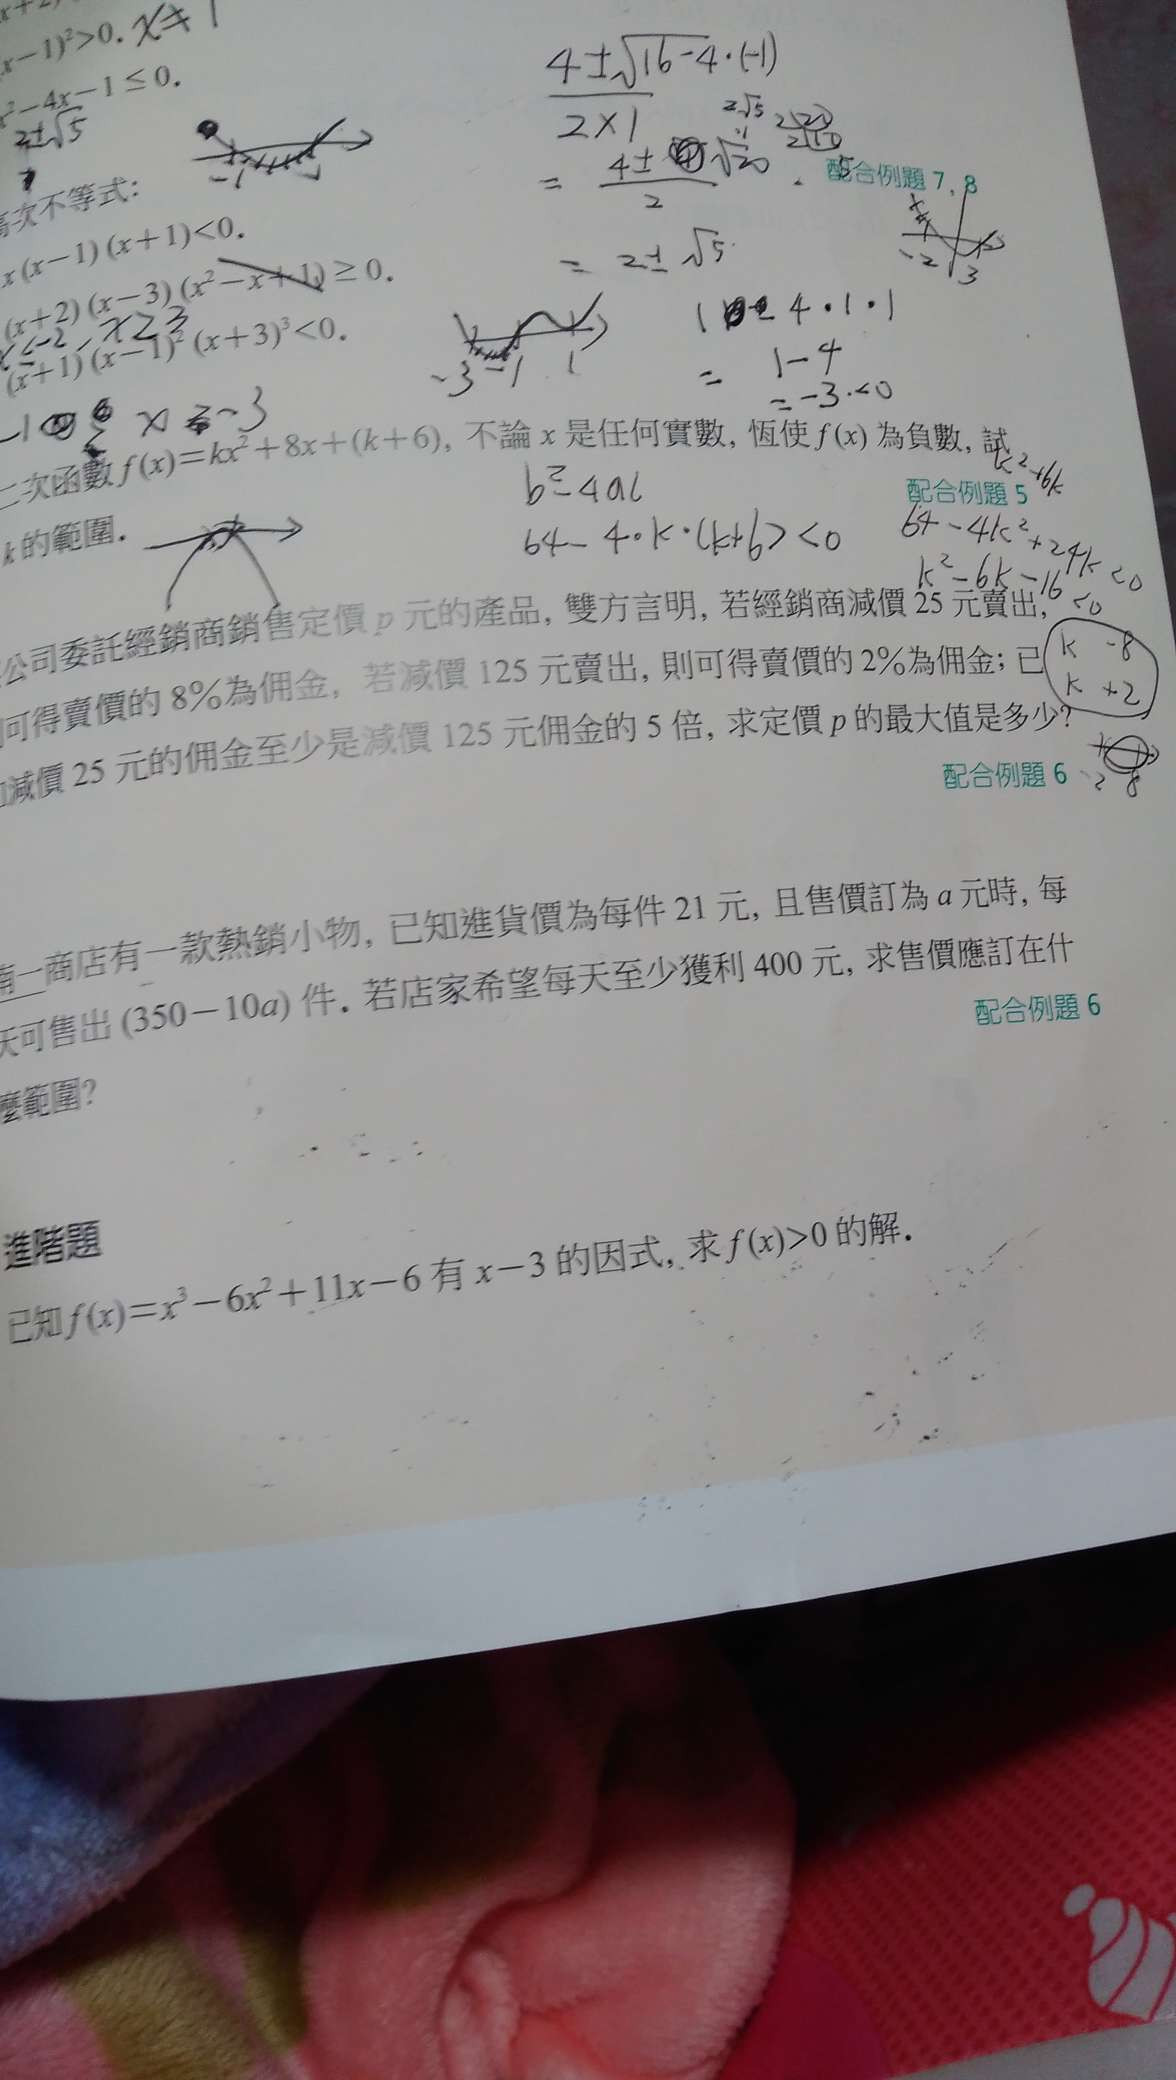 x-1)²>0. x≠1
x²-4x-1≤0.
2±√5
4±√16-4·(-1)
2×1
2√5
= 4±√20
2
= 2±√5
配合例題 7, 8
-2 3
高次不等式:
x(x-1)(x+1)<0.
(x+2)(x-3)(x²-x+1)≥0.
x≤-2, x≥3
(x+1)(x-1)²(x+3)³<0.
-3 -1 1
4·1·1
= 1-4
=-3<0
二次函數 f(x)=kx²+8x+(k+6), 不論 x 是任何實數, 恆使 f(x) 為負數, 試
k²+6k
配合例題 5
k 的範圍.
b²-4ac
64-4·k·(k+6)<0
64-4k²+24k<0
k²-6k-16<0
k -8
k +2
-2 8
公司委託經銷商銷售定價 p 元的產品, 雙方言明, 若經銷商減價 25 元賣出,
可得賣價的 8%為佣金, 若減價 125 元賣出, 則可得賣價的 2%為佣金; 已
減價 25 元的佣金至少是減價 125 元佣金的 5 倍, 求定價 p 的最大值是多少?
配合例題 6
南一商店有一款熱銷小物, 已知進貨價為每件 21 元, 且售價訂為 a 元時, 每
天可售出 (350-10a) 件. 若店家希望每天至少獲利 400 元, 求售價應訂在什
麼範圍?
配合例題 6
進階題
已知 f(x)=x³-6x²+11x-6 有 x-3 的因式, 求 f(x)>0 的解.